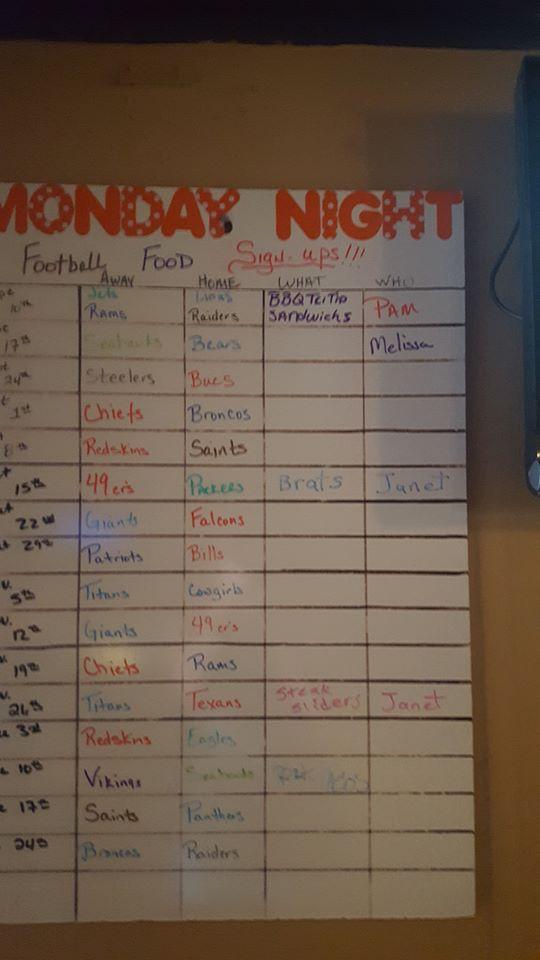 MONDAY NIGHT
Football FOOD Sign-ups!!!
AWAY HOME WHAT WHO
Jets Lions BBQ TRiTip
10th Rams Raiders SANDwichs PAM
17th Seahawks Bears Melissa
24th Steelers Bucs
1st Chiefs Broncos
8th Redskins Saints
15th 49er's Packers Brats Janet
22nd Giants Falcons
29th Patriots Bills
5th Titans Cowgirls
12th Giants 49er's
19th Chiefs Rams
26th Titans Texans Steak sliders Janet
3rd Redskins Eagles
10th Vikings Seahawks
17th Saints Panthers
24th Broncos Raiders